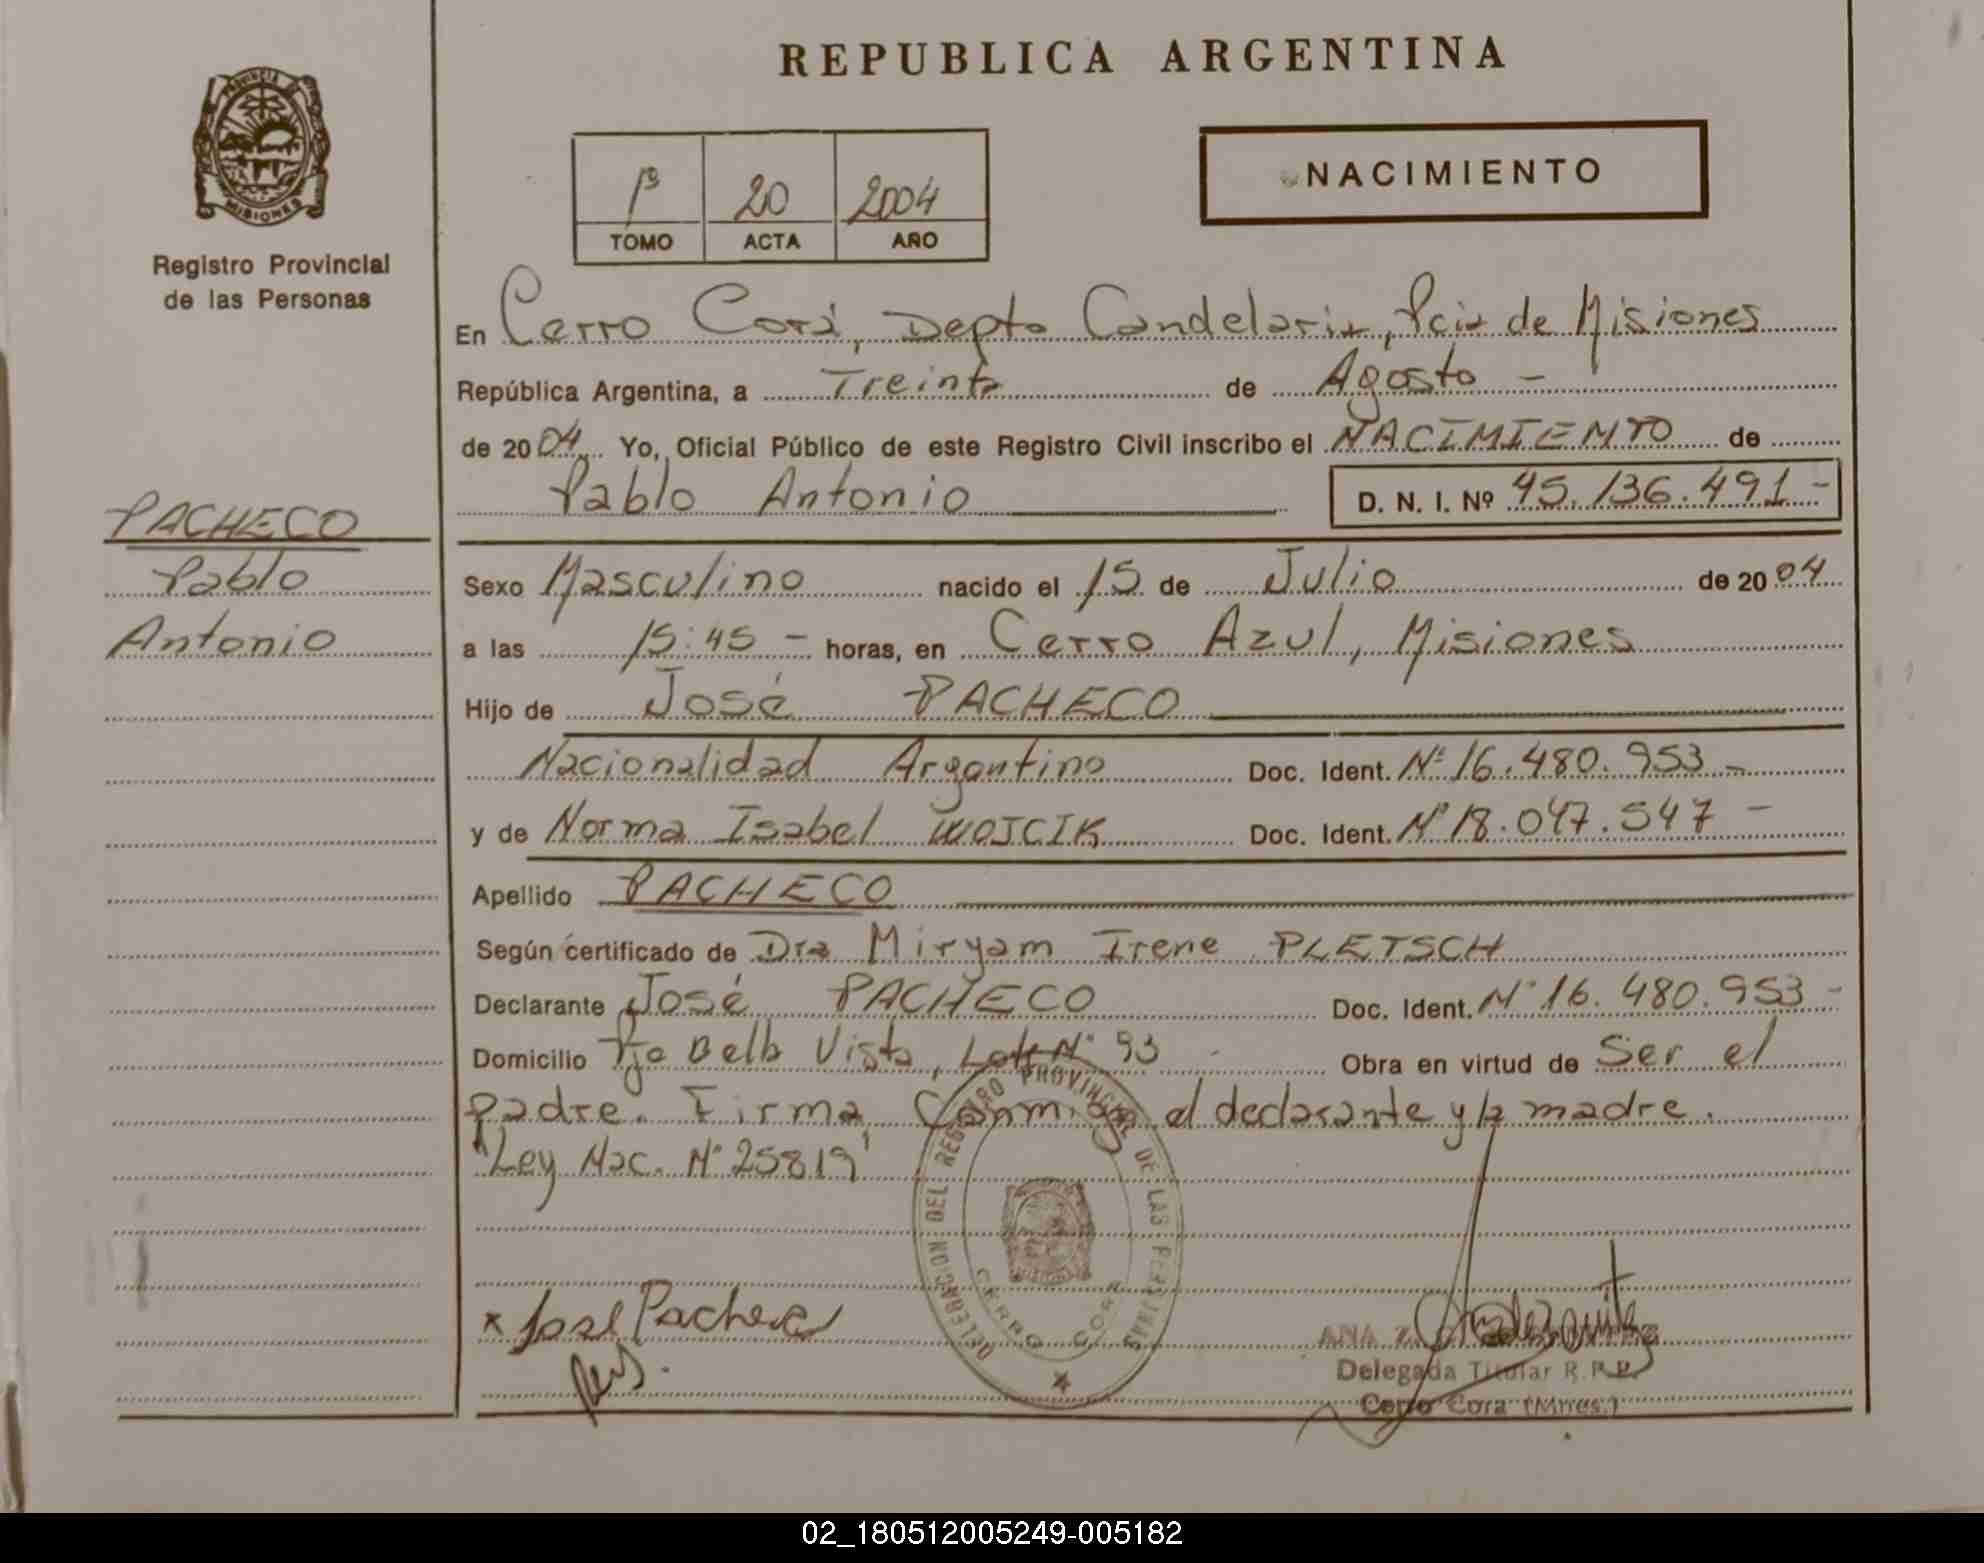 REPUBLICA ARGENTINA
PROVINCIA DE
MISIONES
Registro Provincial
de las Personas
1º 20 2004
TOMO ACTA AÑO
NACIMIENTO
En Cerro Corá, Depto Candelaria, Pcia de Misiones
República Argentina, a Treinta de Agosto -
de 2004 Yo, Oficial Público de este Registro Civil inscribo el NACIMIENTO de
Pablo Antonio D. N. I. Nº 45.136.491-
PACHECO
Pablo
Antonio
Sexo Masculino nacido el 15 de Julio de 2004
a las 15:45 - horas, en Cerro Azul, Misiones
Hijo de José PACHECO
Nacionalidad Argentino Doc. Ident. Nº 16.480.953 -
y de Norma Isabel WOJCIK Doc. Ident. Nº 18.047.547 -
Apellido PACHECO
Según certificado de Dra Miryam Irene PLETSCH
Declarante José PACHECO Doc. Ident. Nº 16.480.953 -
Domicilio Pje Bella Vista, Lote Nº 93 - Obra en virtud de Ser el
padre. Firma Conmigo el declarante y la madre.
"Ley Nac. Nº 25819"
DELEGACION DEL REGISTRO PROVINCIAL DE LAS PERSONAS
CERRO CORA
x José Pacheco
ANA Z.
Delegada Titular R.P.P.
Cerro Cora (Mnes.)
02_180512005249-005182